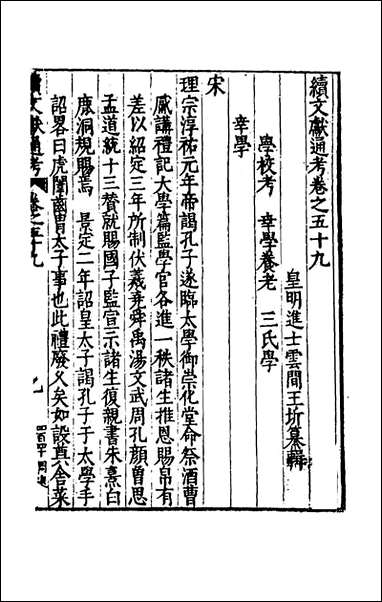 續文獻通考卷之五十九
皇明進士雲間王圻纂輯
學校考 幸學養老 三氏學
幸學
宋
理宗淳祐元年帝謁孔子遂臨太學御崇化堂命祭酒曹
觱講禮記大學篇監學官各進一秩諸生推恩賜帛有
差以紹定三年所制伏羲堯舜禹湯文武周孔顏曾思
孟道統十三贊就賜國子監宣示諸生復親書朱熹白
鹿洞規賜焉 景定二年詔皇太子謁孔子于太學手
詔畧曰虎闈齒胄太子事也此禮廢久矣如設奠舍菜
續文獻通考 卷之五十九